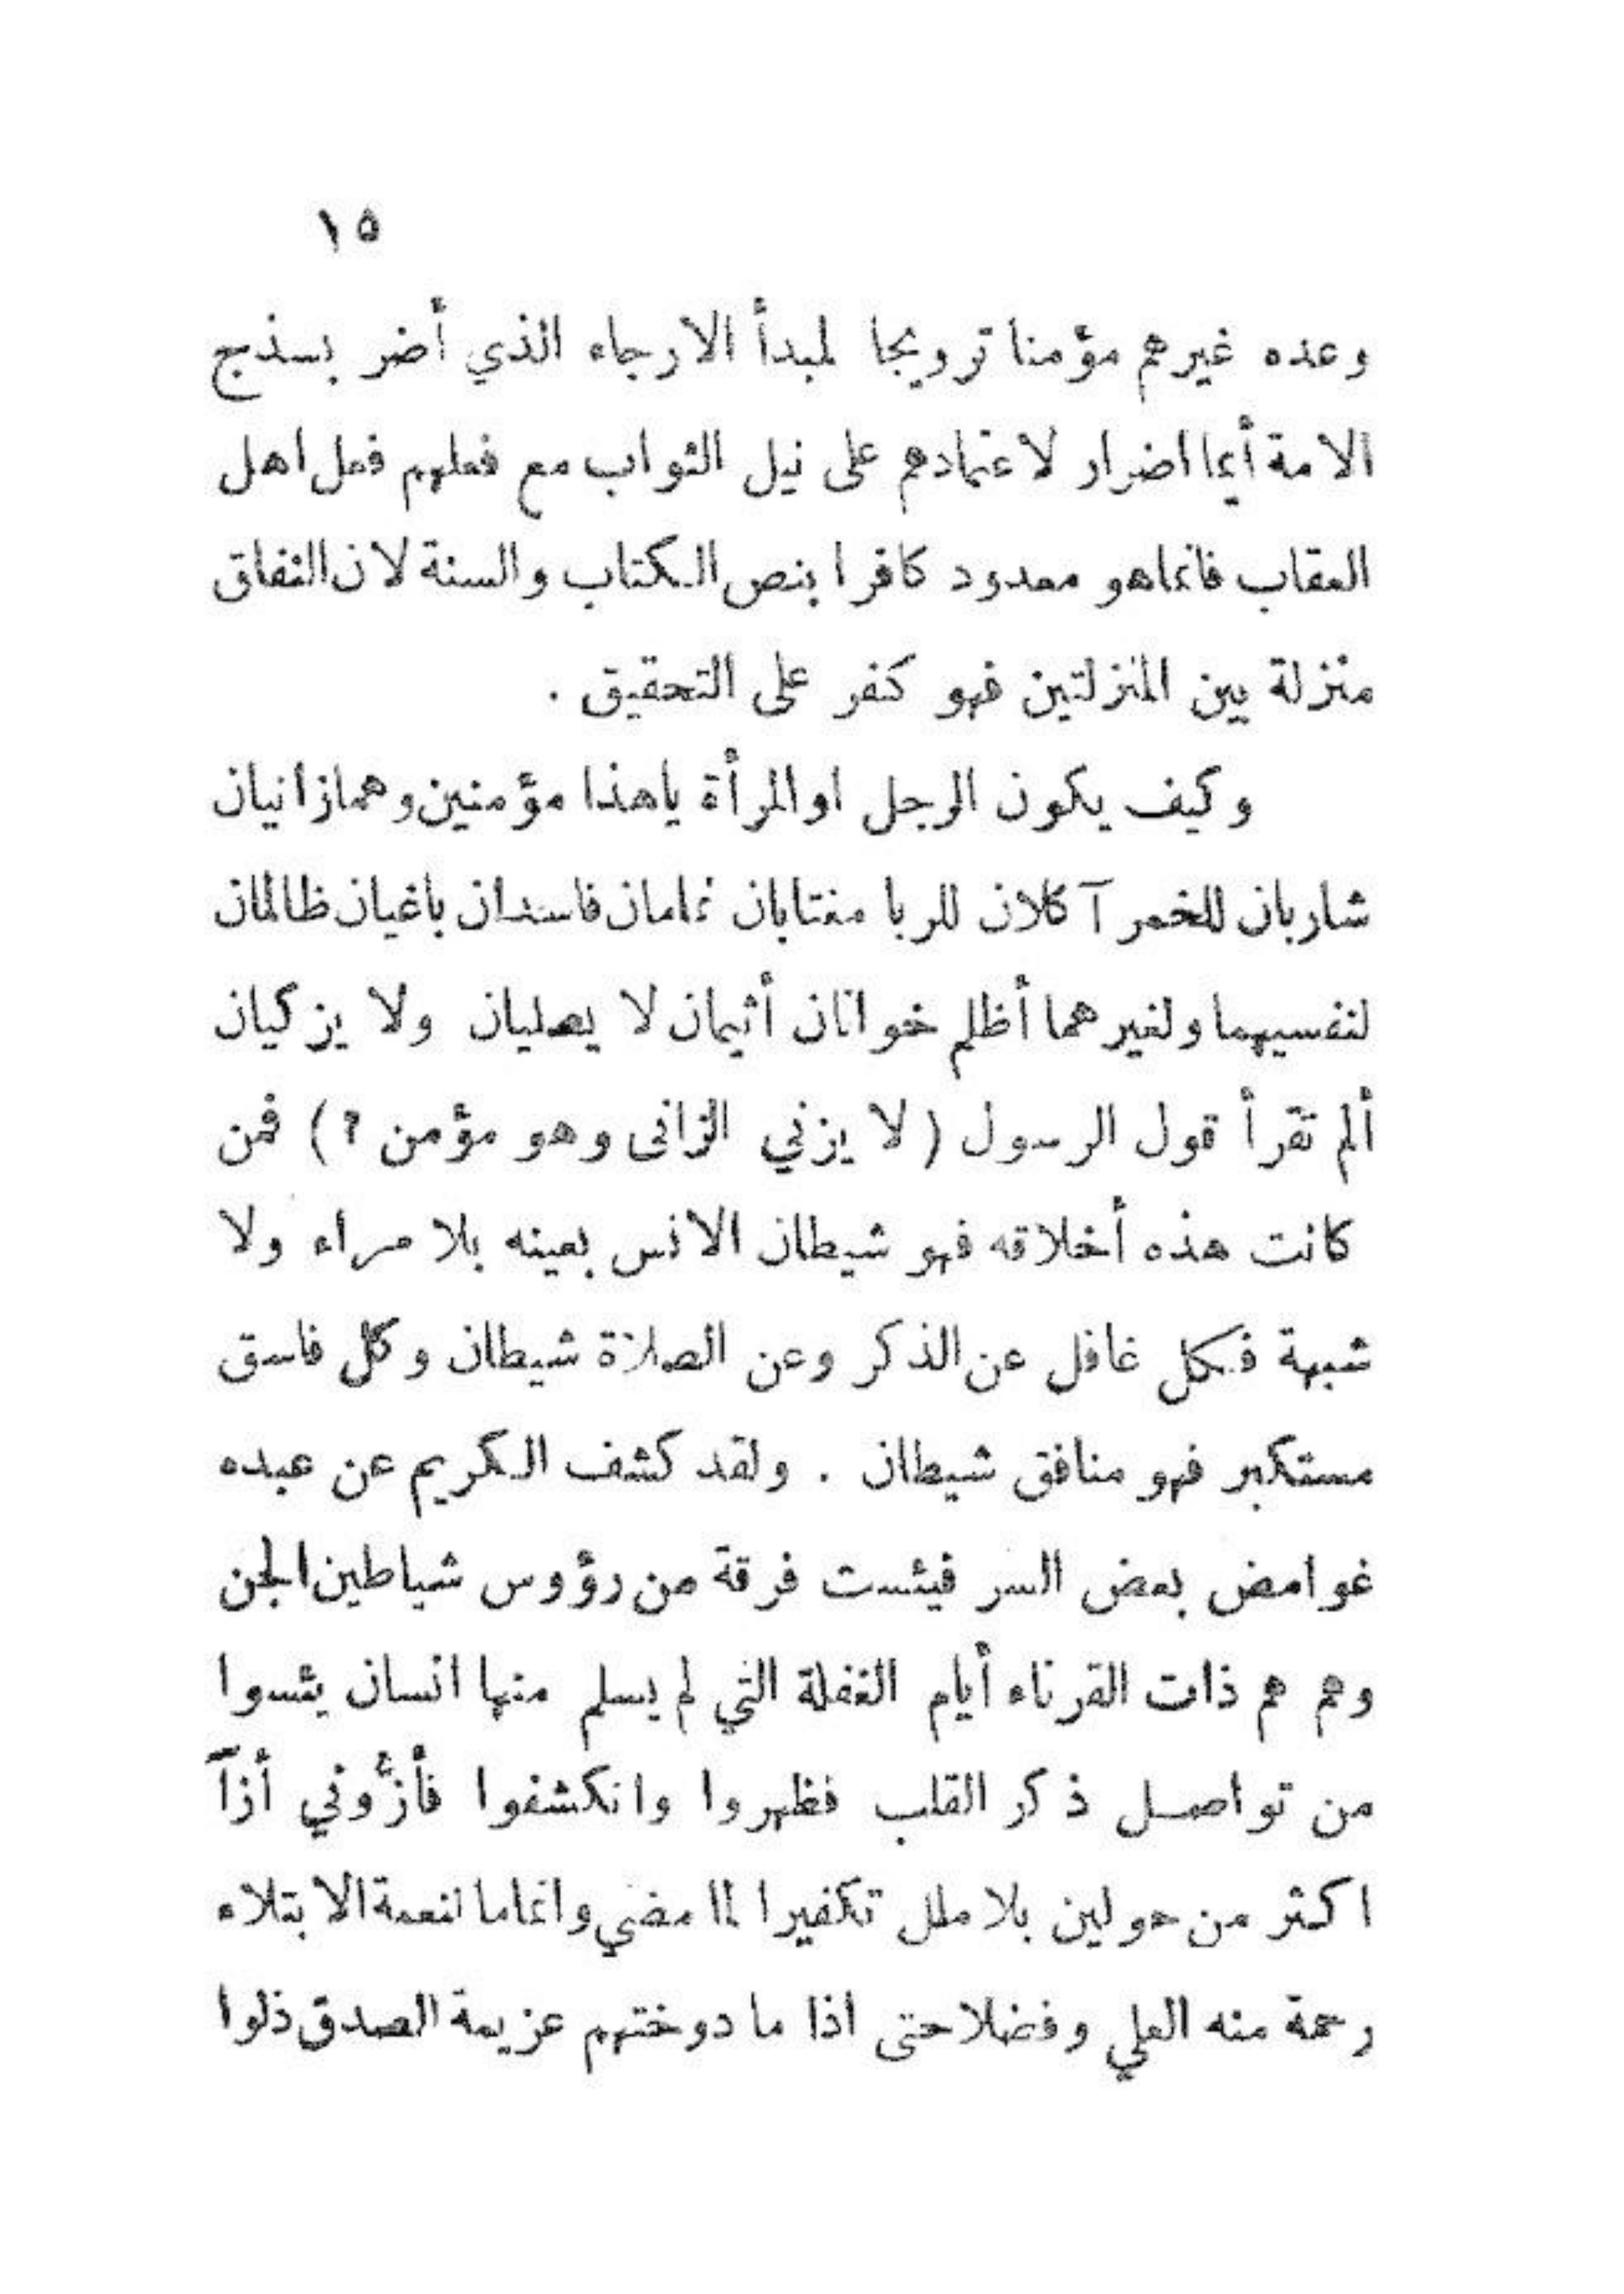 ١٥
وعده غيرهم مؤمنا ترويجا لمبدأ الارجاء الذي أضر بسذج
الامة أيما اضرار لاعتمادهم على نيل الثواب مع فعلهم فعل اهل
العقاب فانما هو معدود كافرا بنص الكتاب والسنة لان النفاق
منزلة بين المنزلتين فهو كفر على التحقيق .
وكيف يكون الرجل او المرأة ياهذا مؤمنين وهما زانيان
شاربان للخمر آ كلان للربا مغتابان نمامان فاسدان باغيان ظالمان
لنفسيهما ولغيرهما أظلم خوانان أثيمان لا يصليان ولا يزكيان
ألم تقرأ قول الرسول ( لا يزني الزانى وهو مؤمن ؟ ) فمن
كانت هذه أخلاقه فهو شيطان الانس بعينه بلا مراء ولا
شبهة فكل غافل عن الذكر وعن الصلاة شيطان وكل فاسق
مستكبر فهو منافق شيطان . ولقد كشف الكريم عن عبده
غوامض بعض السر فيئست فرقة من رؤوس شياطين الجن
وهم هم ذات القرناء أيام الغفلة التي لم يسلم منها انسان يئسوا
من تواصل ذكر القلب فظهروا وانكشفوا فأزُّوني أزاً
اكثر من حولين بلا ملل تكفيرا لما مضى واتماما لنعمة الابتلاء
رحمة منه العلي وفضلا حتى اذا ما دوختهم عزيمة الصدق ذلوا